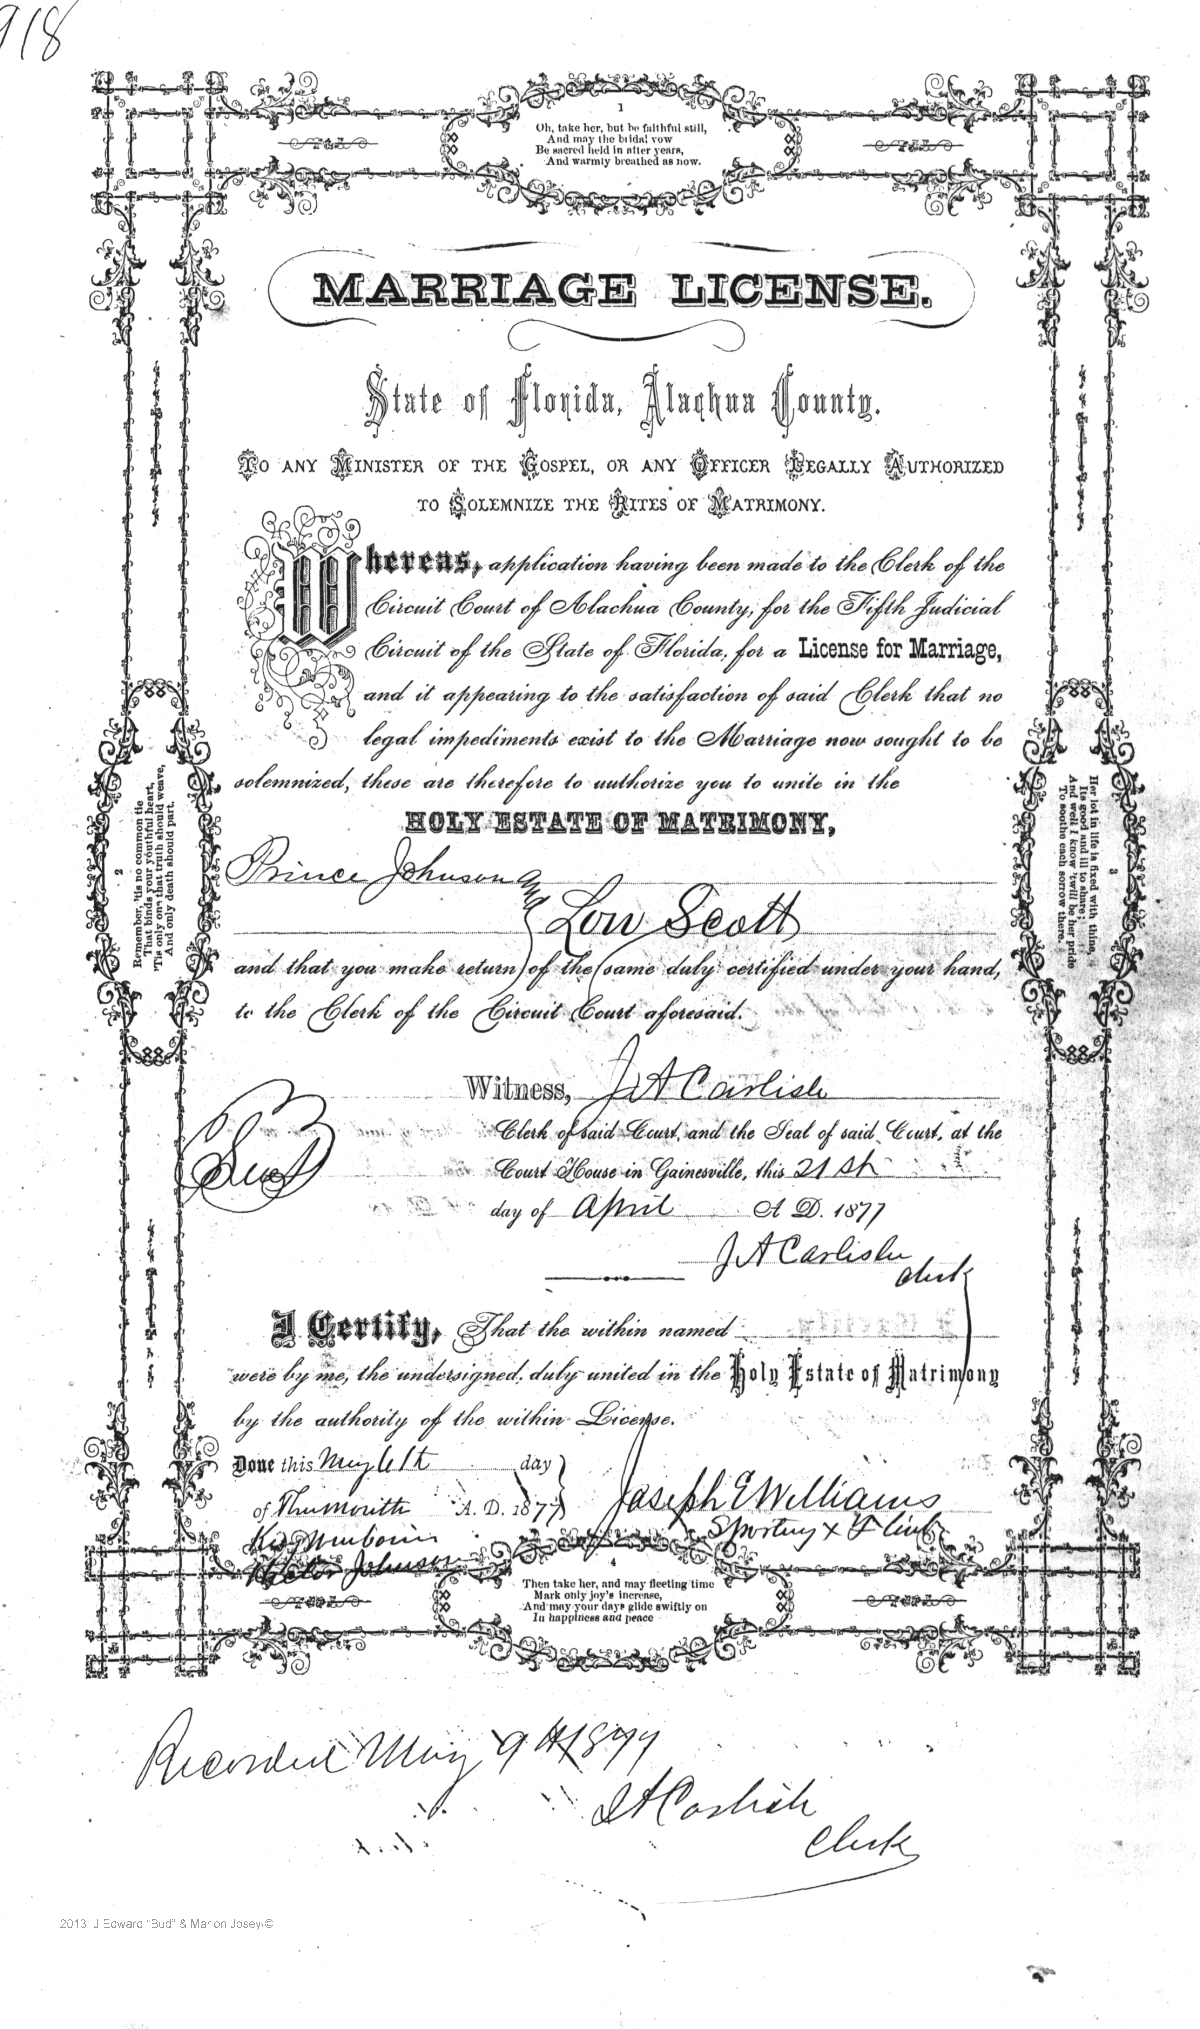 918
1
Oh, take her, but be faithful still,
And may the bridal vow
Be sacred held in after years,
And warmly breathed as now.
MARRIAGE LICENSE.
State of Florida, Alachua County.
TO ANY MINISTER OF THE GOSPEL, OR ANY OFFICER LEGALLY AUTHORIZED
TO SOLEMNIZE THE RITES OF MATRIMONY.
Whereas, application having been made to the Clerk of the
Circuit Court of Alachua County, for the Fifth Judicial
Circuit of the State of Florida, for a License for Marriage,
and it appearing to the satisfaction of said Clerk that no
legal impediments exist to the Marriage now sought to be
solemnized, these are therefore to authorize you to unite in the
HOLY ESTATE OF MATRIMONY,
Prince Johnson and
Low Scott
and that you make return of the same duly certified under your hand,
to the Clerk of the Circuit Court aforesaid.
2
Remember, 'tis no common tie
That binds your youthful heart,
'Tis only one that truth should weave,
And only death should part.
3
Her lot in life is fixed with thine,
Its good and ill to share;
And well I know 'twill be her pride
To soothe each sorrow there.
Witness, J A Carlisle
Clerk of said Court, and the Seal of said Court, at the
Seal
Court House in Gainesville, this 21st
day of April A D. 1877
J A Carlisle
Clerk
I Certify, That the within named
were by me, the undersigned, duly united in the Holy Estate of Matrimony
by the authority of the within License.
Done this May 6th day
of This month A. D. 1877
Joseph E Williams
Johnson
4
Then take her, and may fleeting time
Mark only joy's increase,
And may your days glide swiftly on
In happiness and peace
Recorded May 9th 1877
J A Carlisle
Clerk
2013 J Edward "Bud" & Marion Josey©